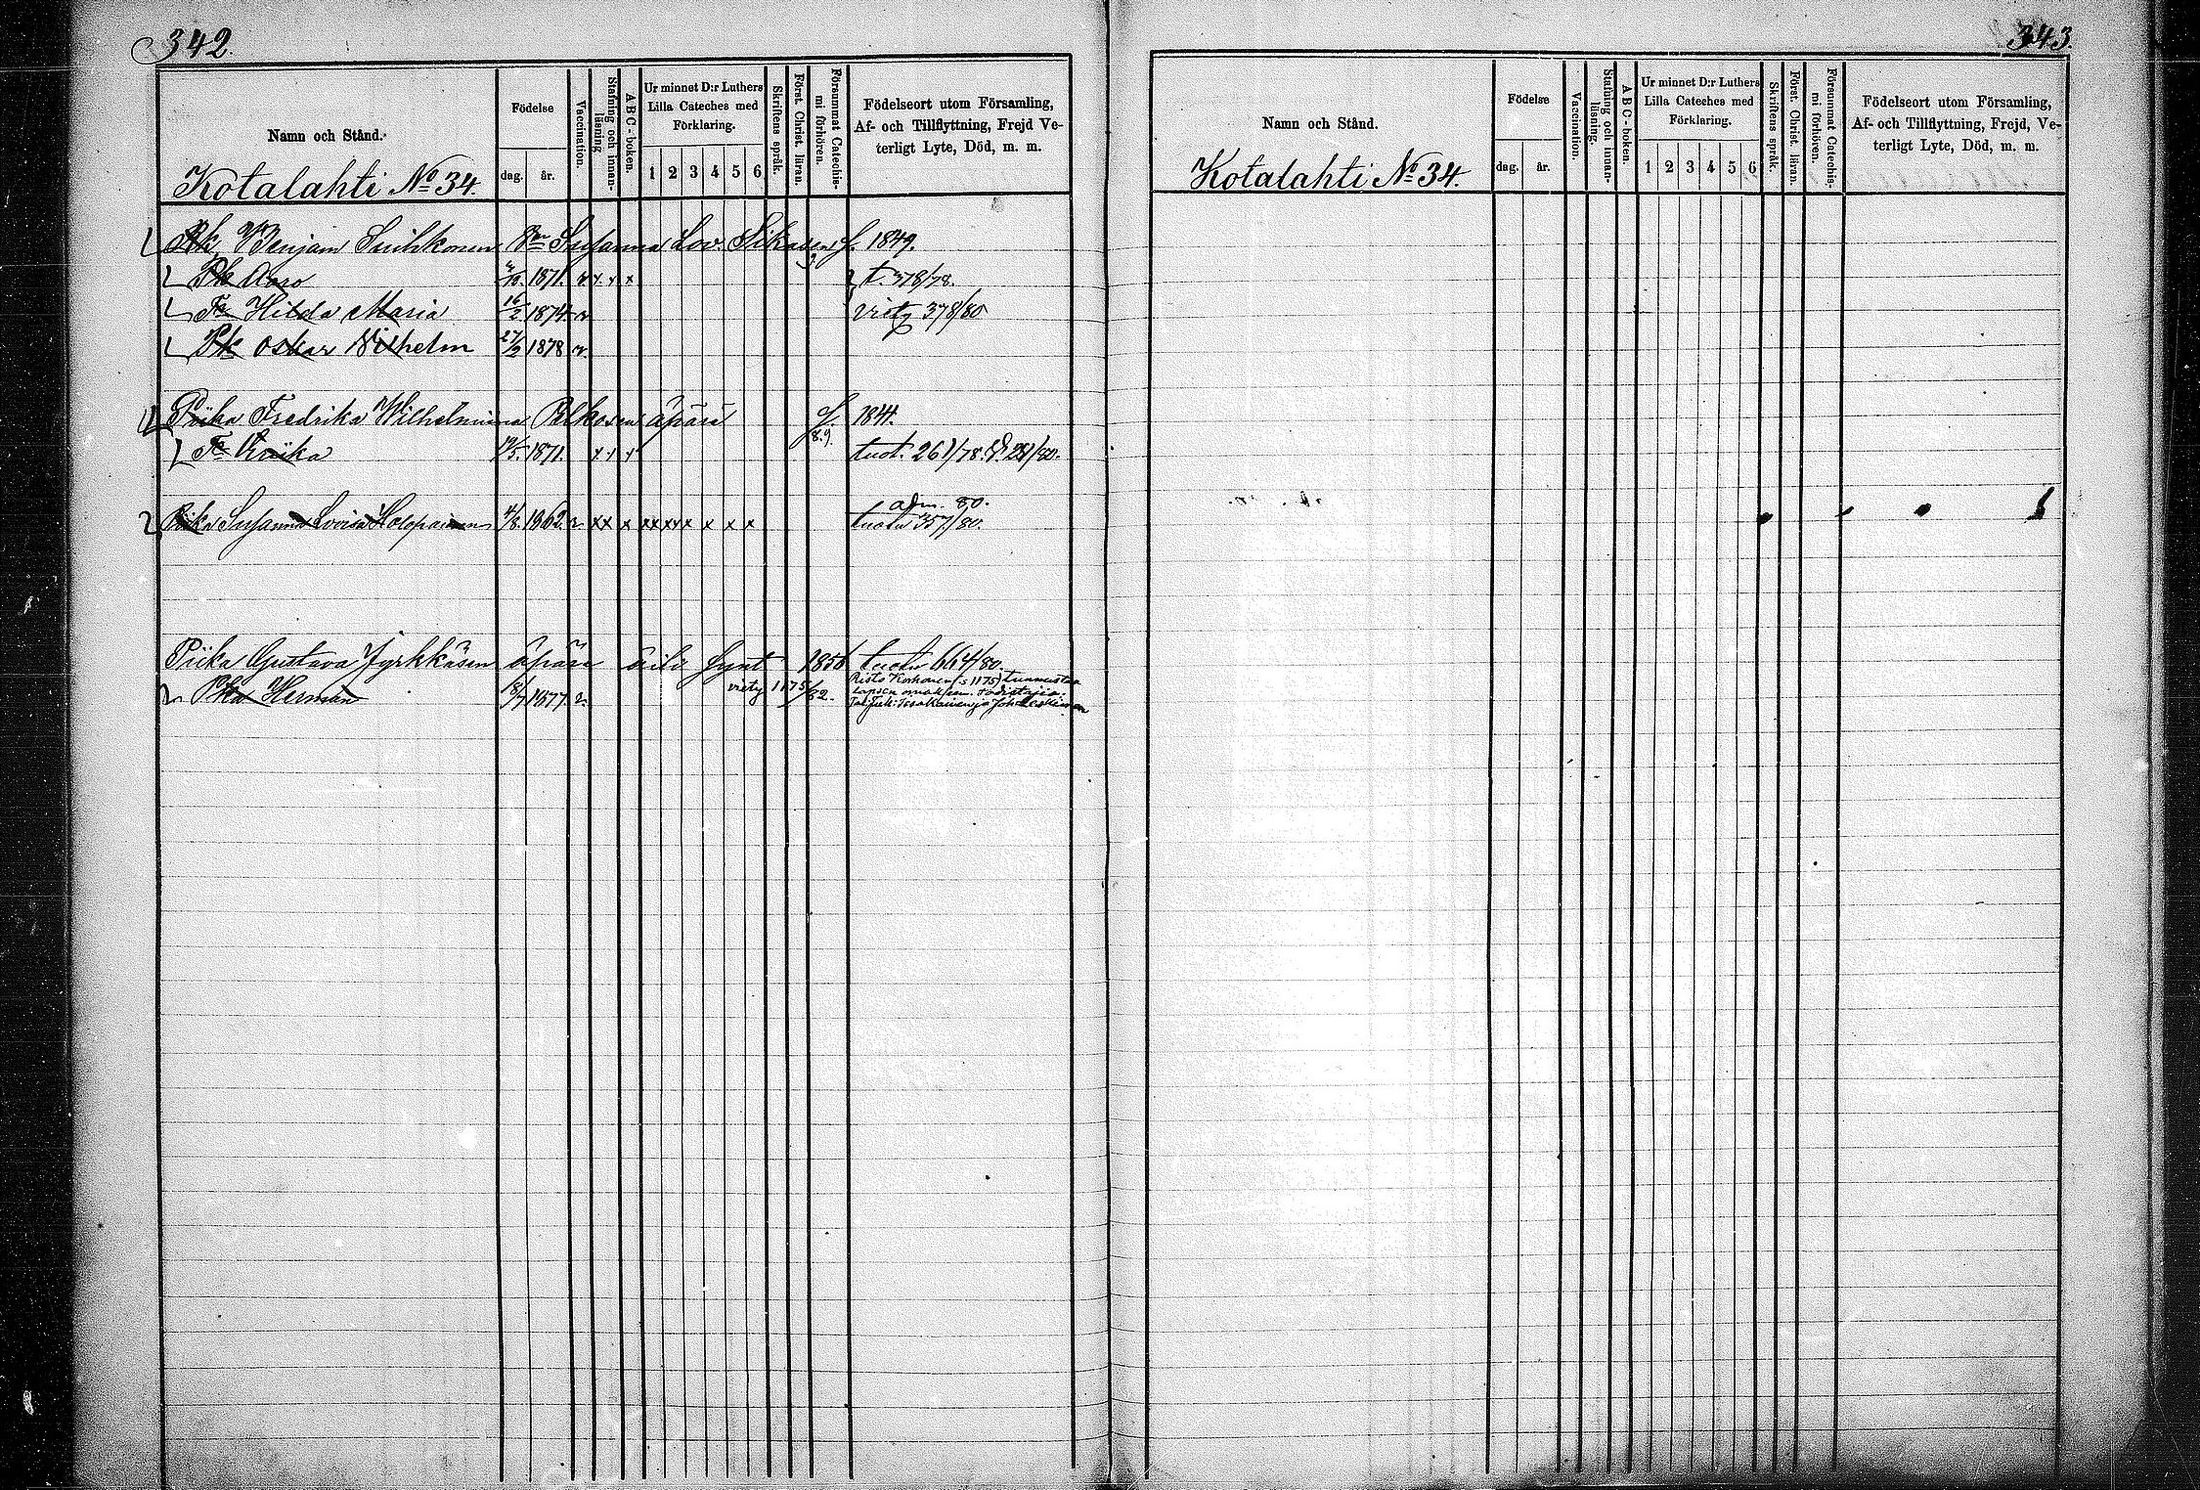 342.
Namn och Stånd.
Födelse
dag.
år.
Vaccination.
Stafning och innan-läsning
A B C - boken.
Ur minnet D:r Luthers
Lilla Cateches med
Förklaring.
1 2 3 4 5 6
Skriftens språk.
Först. Christ. läran.
Försummat Catechis-
mi förhören.
Födelseort utom Församling,
Af- och Tillflyttning, Frejd Ve-
terligt Lyte, Död, m. m.
Kotalahti No 34.
Benjam Suihkonen Susanna Lov. 1849.
Pk Aaro 1871. v x x x t. 378/78.
Hilda Maria 16/2 1874 v viety 378/80
Pk Oskar Wilhelm 1878 v
Piika Fredrika Wilhelmiina äpärä 1841.
8.9.
1871. x x x tuot. 261/78.
adm. 80.
Piika Susanna Lovisa Holopainen 1862 v xx x xx xx x x x x tuotu 357/80.
Piika Gustava Jyrkkäsen äpärä äiti synt 1856 tuotu 664/80.
Herman 1877 v viety 1175/82.
Risto Korhonen (s 1175) tunnustaa
lapsen omakseen. Todistajia:
343.
Namn och Stånd.
Födelse
dag.
år.
Vaccination.
Stafning och innan-
läsning.
A B C - boken.
Ur minnet D:r Luthers
Lilla Cateches med
Förklaring.
1 2 3 4 5 6
Skriftens språk.
Först. Christ. läran.
Försummat Catechis-
mi förhören.
Födelseort utom Församling,
Af- och Tillflyttning, Frejd, Ve-
terligt Lyte, Död, m. m.
Kotalahti No 34.